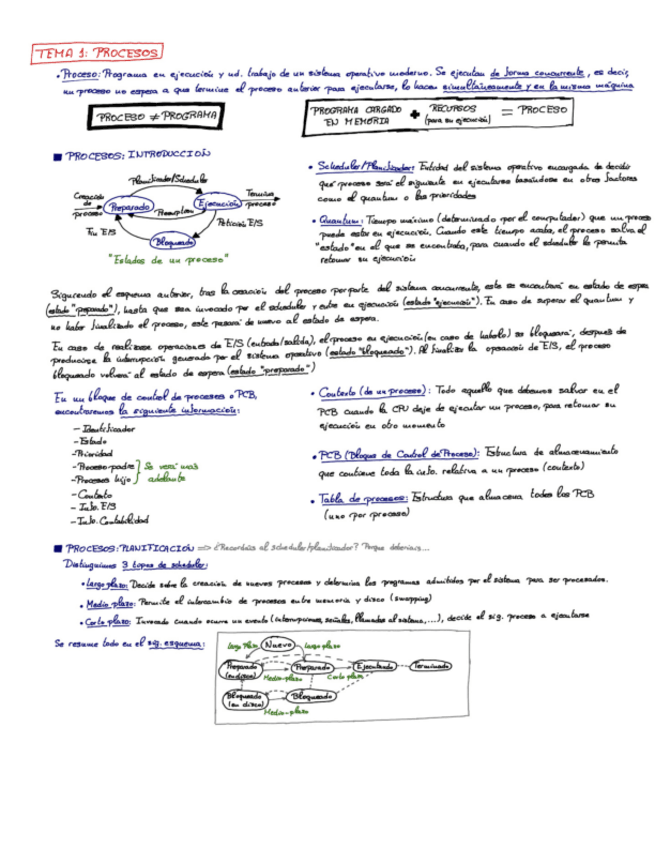 TEMA 1: PROCESOS
• Proceso: Programa en ejecución y ud. trabajo de un sistema operativo moderno. Se ejecutan de forma concurrente, es decir,
un proceso no espera a que termine el proceso anterior para ejecutarse, lo hacen simultáneamente y en la misma máquina
PROCESO ≠ PROGRAMA
PROGRAMA CARGADO EN MEMORIA + RECURSOS (para su ejecución) = PROCESO
■ PROCESOS: INTRODUCCIÓN
Planificador/Scheduler
Creación de proceso
Preparado
Ejecución
Termina proceso
Preemption
Fin E/S
Petición E/S
Bloqueado
"Estados de un proceso"
• Scheduler/Planificador: Entidad del sistema operativo encargada de decidir
qué proceso será el siguiente en ejecutarse basándose en otros factores
como el quantum o las prioridades
• Quantum: Tiempo máximo (determinado por el computador) que un proceso
puede estar en ejecución. Cuando este tiempo acaba, el proceso salva el
"estado" en el que se encontraba, para cuando el scheduler le permita
retomar su ejecución
Siguiendo el esquema anterior, tras la creación del proceso por parte del sistema concurrente, este se encontrará en estado de espera
(estado "preparado"), hasta que sea invocado por el scheduler y entre en ejecución (estado "ejecución"). En caso de superar el quantum y
no haber finalizado el proceso, este pasará de nuevo al estado de espera.
En caso de realizarse operaciones de E/S (entrada/salida), el proceso en ejecución (en caso de haberlo) se bloqueará, después de
producirse la interrupción generada por el sistema operativo (estado "bloqueado"). Al finalizar la operación de E/S, el proceso
bloqueado volverá al estado de espera (estado "preparado")
En un bloque de control de procesos o PCB,
encontraremos la siguiente información:
— Identificador
— Estado
— Prioridad
— Proceso padre
— Procesos hijo
Se verá más adelante
— Contexto
— Info. E/S
— Info. Contabilidad
• Contexto (de un proceso): Todo aquello que debemos salvar en el
PCB cuando la CPU deje de ejecutar un proceso, para retomar su
ejecución en otro momento
• PCB (Bloque de Control de Proceso): Estructura de almacenamiento
que contiene toda la info. relativa a un proceso (contexto)
• Tabla de procesos: Estructura que almacena todos los PCB
(uno por proceso)
■ PROCESOS: PLANIFICACIÓN => ¿Recordáis al scheduler/planificador? Porque deberíais...
Distinguimos 3 tipos de scheduler:
• Largo plazo: Decide sobre la creación de nuevos procesos y determina los programas admitidos por el sistema para ser procesados.
• Medio plazo: Permite el intercambio de procesos entre memoria y disco (swapping)
• Corto plazo: Invocado cuando ocurre un evento (interrupciones, señales, llamadas al sistema, ...), decide el sig. proceso a ejecutarse
Se resume todo en el sig. esquema:
Largo Plazo
Nuevo
Largo plazo
Preparado (en disco)
Preparado
Ejecutando
Terminado
Medio-plazo
Corto plazo
Bloqueado (en disco)
Bloqueado
Medio-plazo